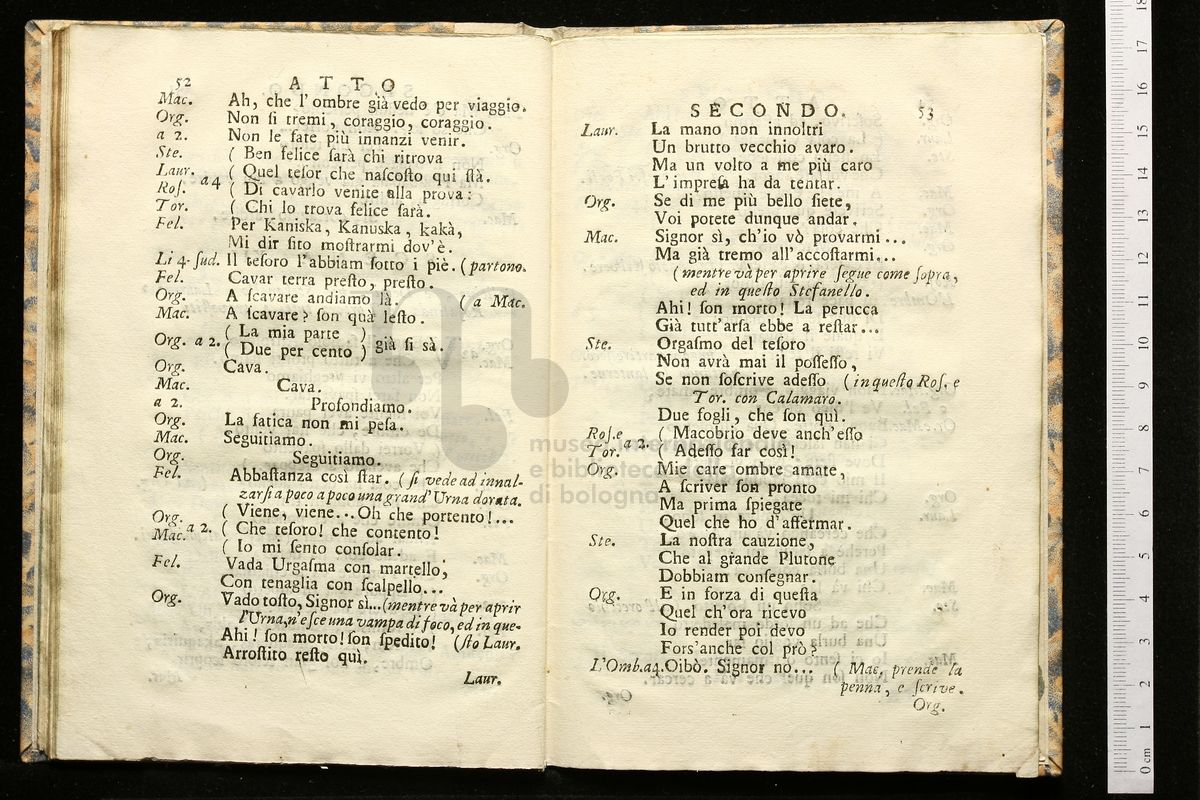 52 ATTO
Mac. Ah, che l'ombre già vedo per viaggio.
Org. Non ſi tremi, coraggio, coraggio.
a 2. Non le fate più innanzi venir.
Ste. ( Ben felice ſarà chi ritrova
Laur. ( Quel teſor che naſcoſto qui ſtà.
Roſ. a 4 ( Di cavarlo venite alla prova:
Tor. ( Chi lo trova felice ſarà.
Fel. Per Kaniska, Kanuska, kakà,
Mi dir ſito moſtrarmi dov'è.
Li 4. ſud. Il teſoro l'abbiam ſotto i piè. ( partono.
Fel. Cavar terra preſto, preſto.
Org. A ſcavare andiamo là. ( a Mac.
Mac. A ſcavare? ſon quà leſto.
Org. a 2. ( La mia parte ) già ſi sà.
( Due per cento )
Org. Cava.
Mac. Cava.
a 2. Profondiamo.
Org. La fatica non mi peſa.
Mac. Seguitiamo.
Org. Seguitiamo.
Fel. Abbaſtanza così ſtar. ( ſi vede ad innal-
zarſi a poco a poco una grand' Urna dorata.
Org. ( Viene, viene... Oh che portento!...
Mac. a 2. ( Che teſoro! che contento!
( Io mi ſento conſolar.
Fel. Vada Urgaſma con martello,
Con tenaglia con ſcalpello...
Org. Vado toſto, Signor sì... (mentre và per aprir
l'Urna, n'eſce una vampa di foco, ed in que-
Ahi! ſon morto! ſon ſpedito! (ſto Laur.
Arroſtito reſto quì.
Laur.
SECONDO. 53
Laur. La mano non innoltri
Un brutto vecchio avaro.
Ma un volto a me più caro
L'impreſa ha da tentar.
Org. Se di me più bello ſiete,
Voi potete dunque andar.
Mac. Signor sì, ch'io vò provarmi...
Ma già tremo all'accoſtarmi...
(mentre và per aprire ſegue come ſopra,
ed in queſto Stefanello.
Ahi! ſon morto! La perucca
Già tutt'arſa ebbe a reſtar...
Ste. Orgaſmo del teſoro
Non avrà mai il poſſeſſo,
Se non ſoſcrive adeſſo (in queſto Roſ. e
Tor. con Calamaro.
Due fogli, che ſon quì.
Roſ. e ( Macobrio deve anch'eſſo
Tor. a 2. ( Adeſſo far così!
Org. Mie care ombre amate,
A ſcriver ſon pronto
Ma prima ſpiegate
Quel che ho d'affermar.
Ste. La noſtra cauzione,
Che al grande Plutone
Dobbiam conſegnar.
Org. E in forza di queſta
Quel ch'ora ricevo
Io render poi devo
Fors'anche col prò?
L'Omb. a 4. Oibò. Signor no... ( Mac. prende la
penna, e ſcrive.
Org.
museo internazionale
e biblioteca della musica
di bologna